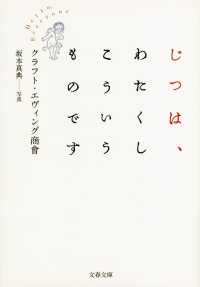 じつは、
わたくし
こういう
ものです
クラフト・エヴィング商會
坂本真典——写真
Hello Everyone
文春文庫